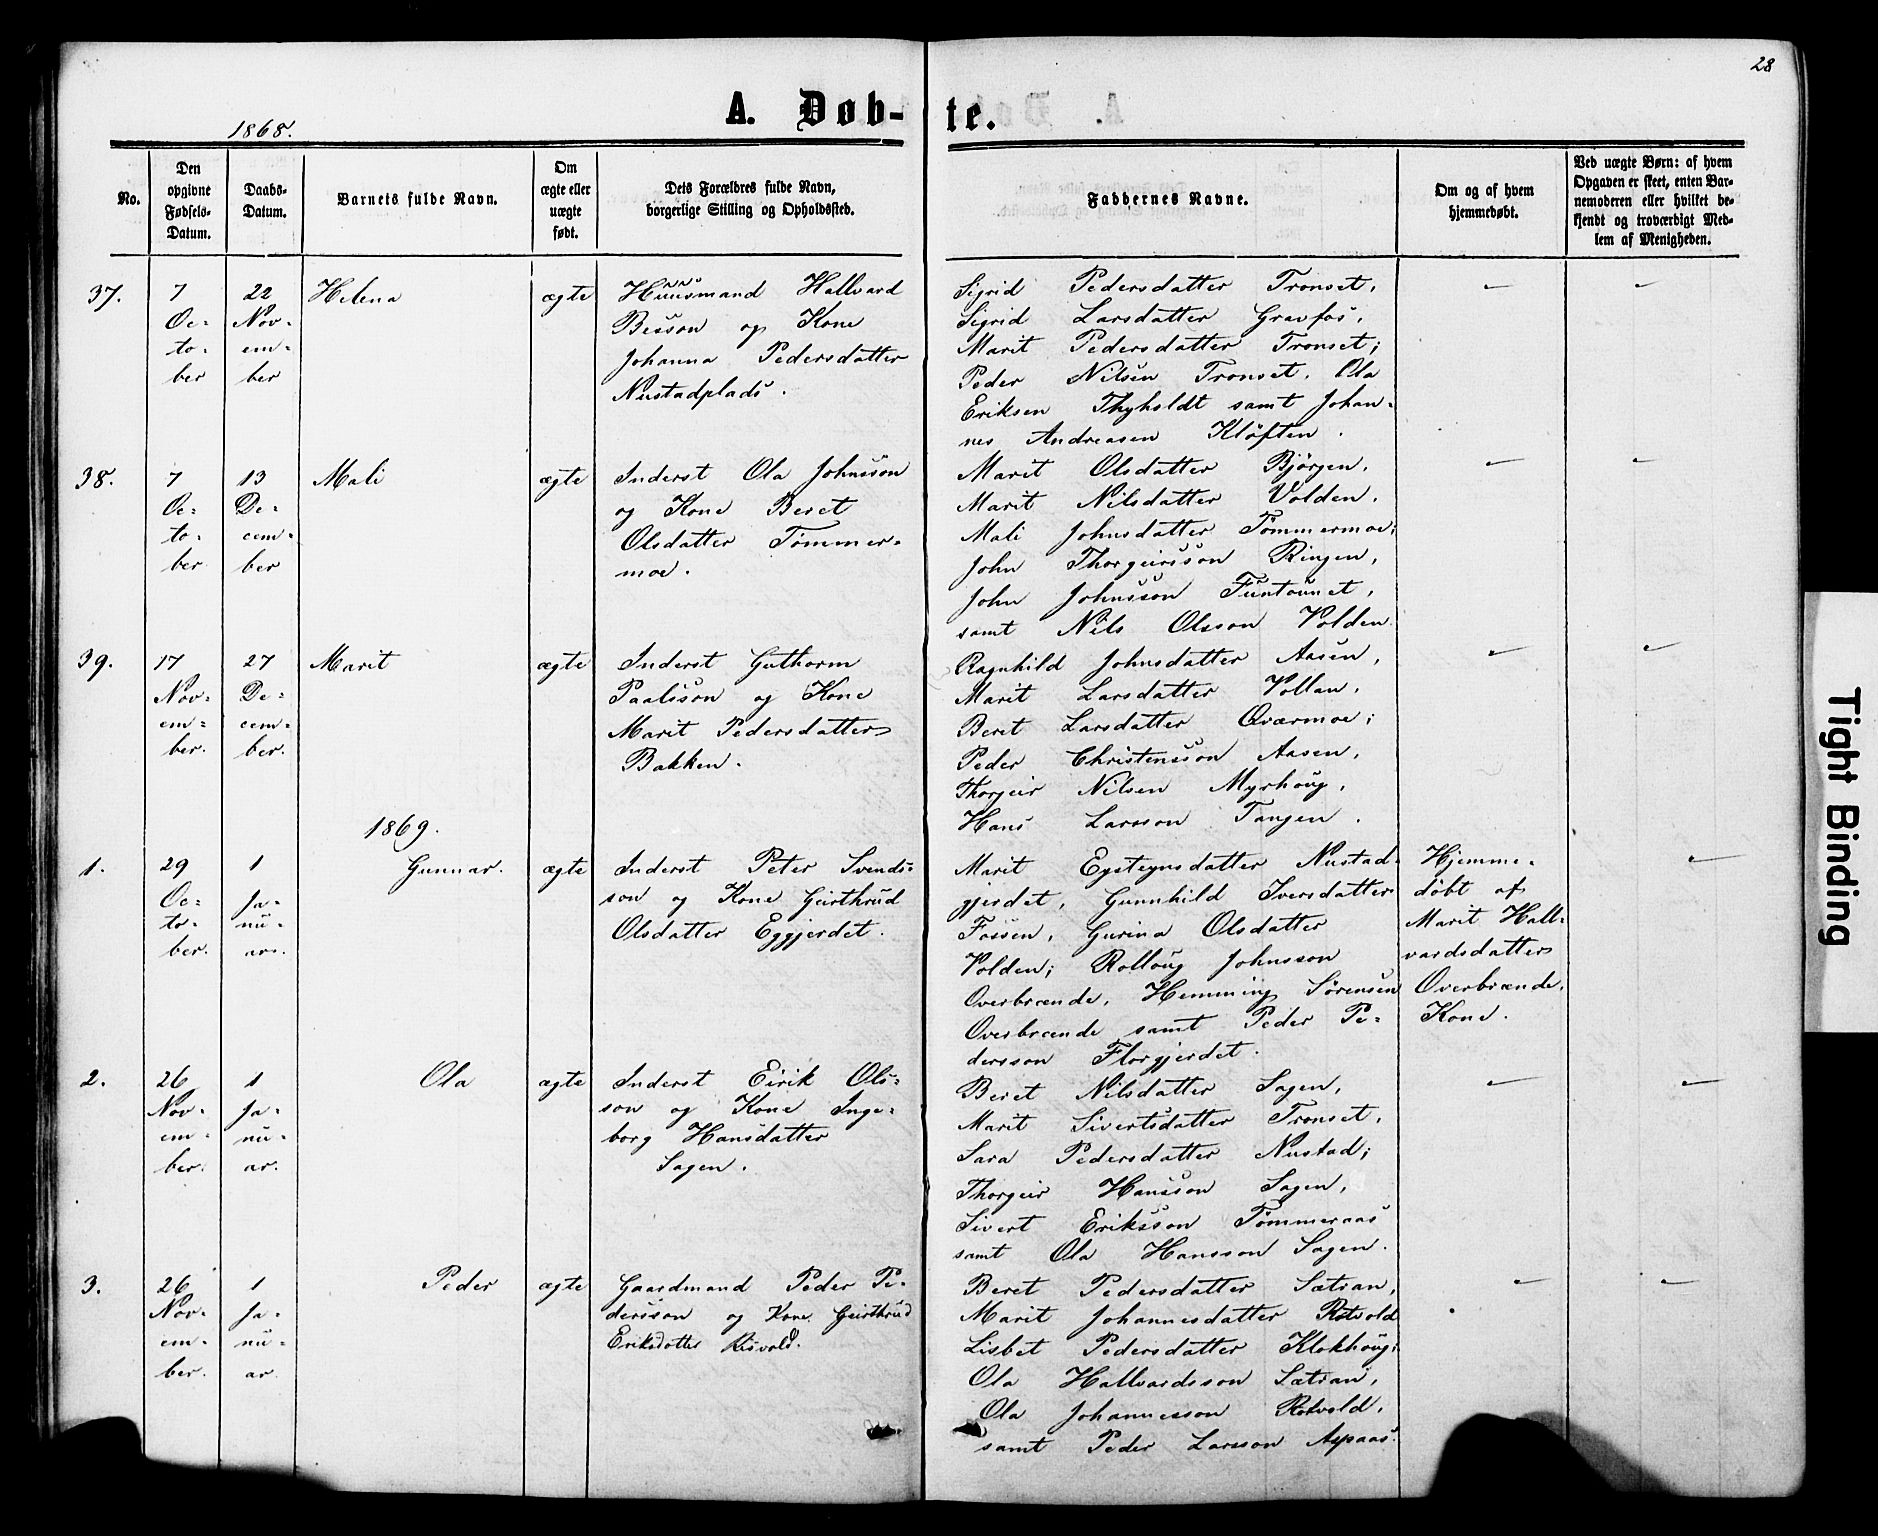 28
A. Døb-te.
1868.
No.
Den opgivne Fødsels-Datum.
Daabs-Datum.
Barnets fulde Navn.
Om ægte eller uægte født.
Dets Forældres fulde Navn, borgerlige Stilling og Opholdssted.
Faddernes Navne.
Om og af hvem hjemmedøbt.
Ved uægte Børn: af hvem Opgaven er skeet, enten Barnemoderen eller hvilket bekjendt og troværdigt Medlem af Menigheden.
37.
7 Oc-
to-
ber
22
Nov-
em-
ber
Helena
ægte
Huusmand Hallvard
Besson og Kone
Johanna Pedersdatter
Nustadplads.
Sigrid Pedersdatter Tronset,
Sigrid Larsdatter Gravfos,
Marit Pedersdatter Tronset;
Peder Nilsen Tronset, Ola
Eriksen Thyholdt samt Johan-
nes Andreasen Kløften.
38.
7
Oc-
to-
ber
13
De-
cem-
ber
Mali
ægte
Inderst Ola Johnsson
og Kone Beret
Olsdatter Tømmer-
moe.
Marit Olsdatter Bjørgen,
Marit Nilsdatter Volden,
Mali Johnsdatter Tømmermoe;
John Thorgeirsson Ringen,
John Johnsson Funtaunet,
samt Nils Olsson Volden.
39.
17
Nov-
em-
ber.
27
De-
cem-
ber.
Marit
ægte
Inderst Guthorm
Paalsson og Kone
Marit Pedersdatter
Bakken.
Ragnhild Johnsdatter Aasen,
Marit Larsdatter Vollan,
Beret Larsdatter Qværmoe;
Peder Christensson Aasen,
Thorgeir Nilsen Myrhoug,
Hans Larsson Tangen.
1869.
1.
29
Oc-
to-
ber.
1
Ja-
nu-
ar.
Gunnar.
ægte
Inderst Peter Svends-
son og Kone Geirthrud
Olsdatter Eggjerdet.
Marit Eysteynsdatter Nustad-
gjerdet, Gunnhild Iversdatter
Fossen, Gurina Olsdatter
Volden; Rolloug Johnsson
Overbrænde, Hemming Sørensen
Overbrænde samt Peder Pe-
dersson Florgjerdet.
Hjemme-
døbt af
Marit Hall-
vardsdatter
Overbrænde,
Kone.
2.
26
Nov-
em-
ber.
1
Ja-
nu-
ar.
Ola
ægte
Inderst Eirik Ols-
son og Kone Inge-
borg Hansdatter
Sagen.
Beret Nilsdatter Sagen,
Marit Sivertsdatter Tronset,
Sara Pedersdatter Nustad;
Thorgeir Hansson Sagen,
Sivert Eriksson Tømmeraas
samt Ola Hansson Sagen.
3.
26
Nov-
em-
ber.
1
Ja-
nu-
ar.
Peder
ægte
Gaardmand Peder Pe-
dersson og Kone Geirthrud
Eriksdatter Risvold.
Beret Pedersdatter Sætran,
Marit Johannesdatter Rotvold
Lisbet Pedersdatter Klokhoug;
Ola Hallvardsson Sætran,
Ola Johannesson Rotvold,
samt Peder Larsson Aspaas.
Tight Binding